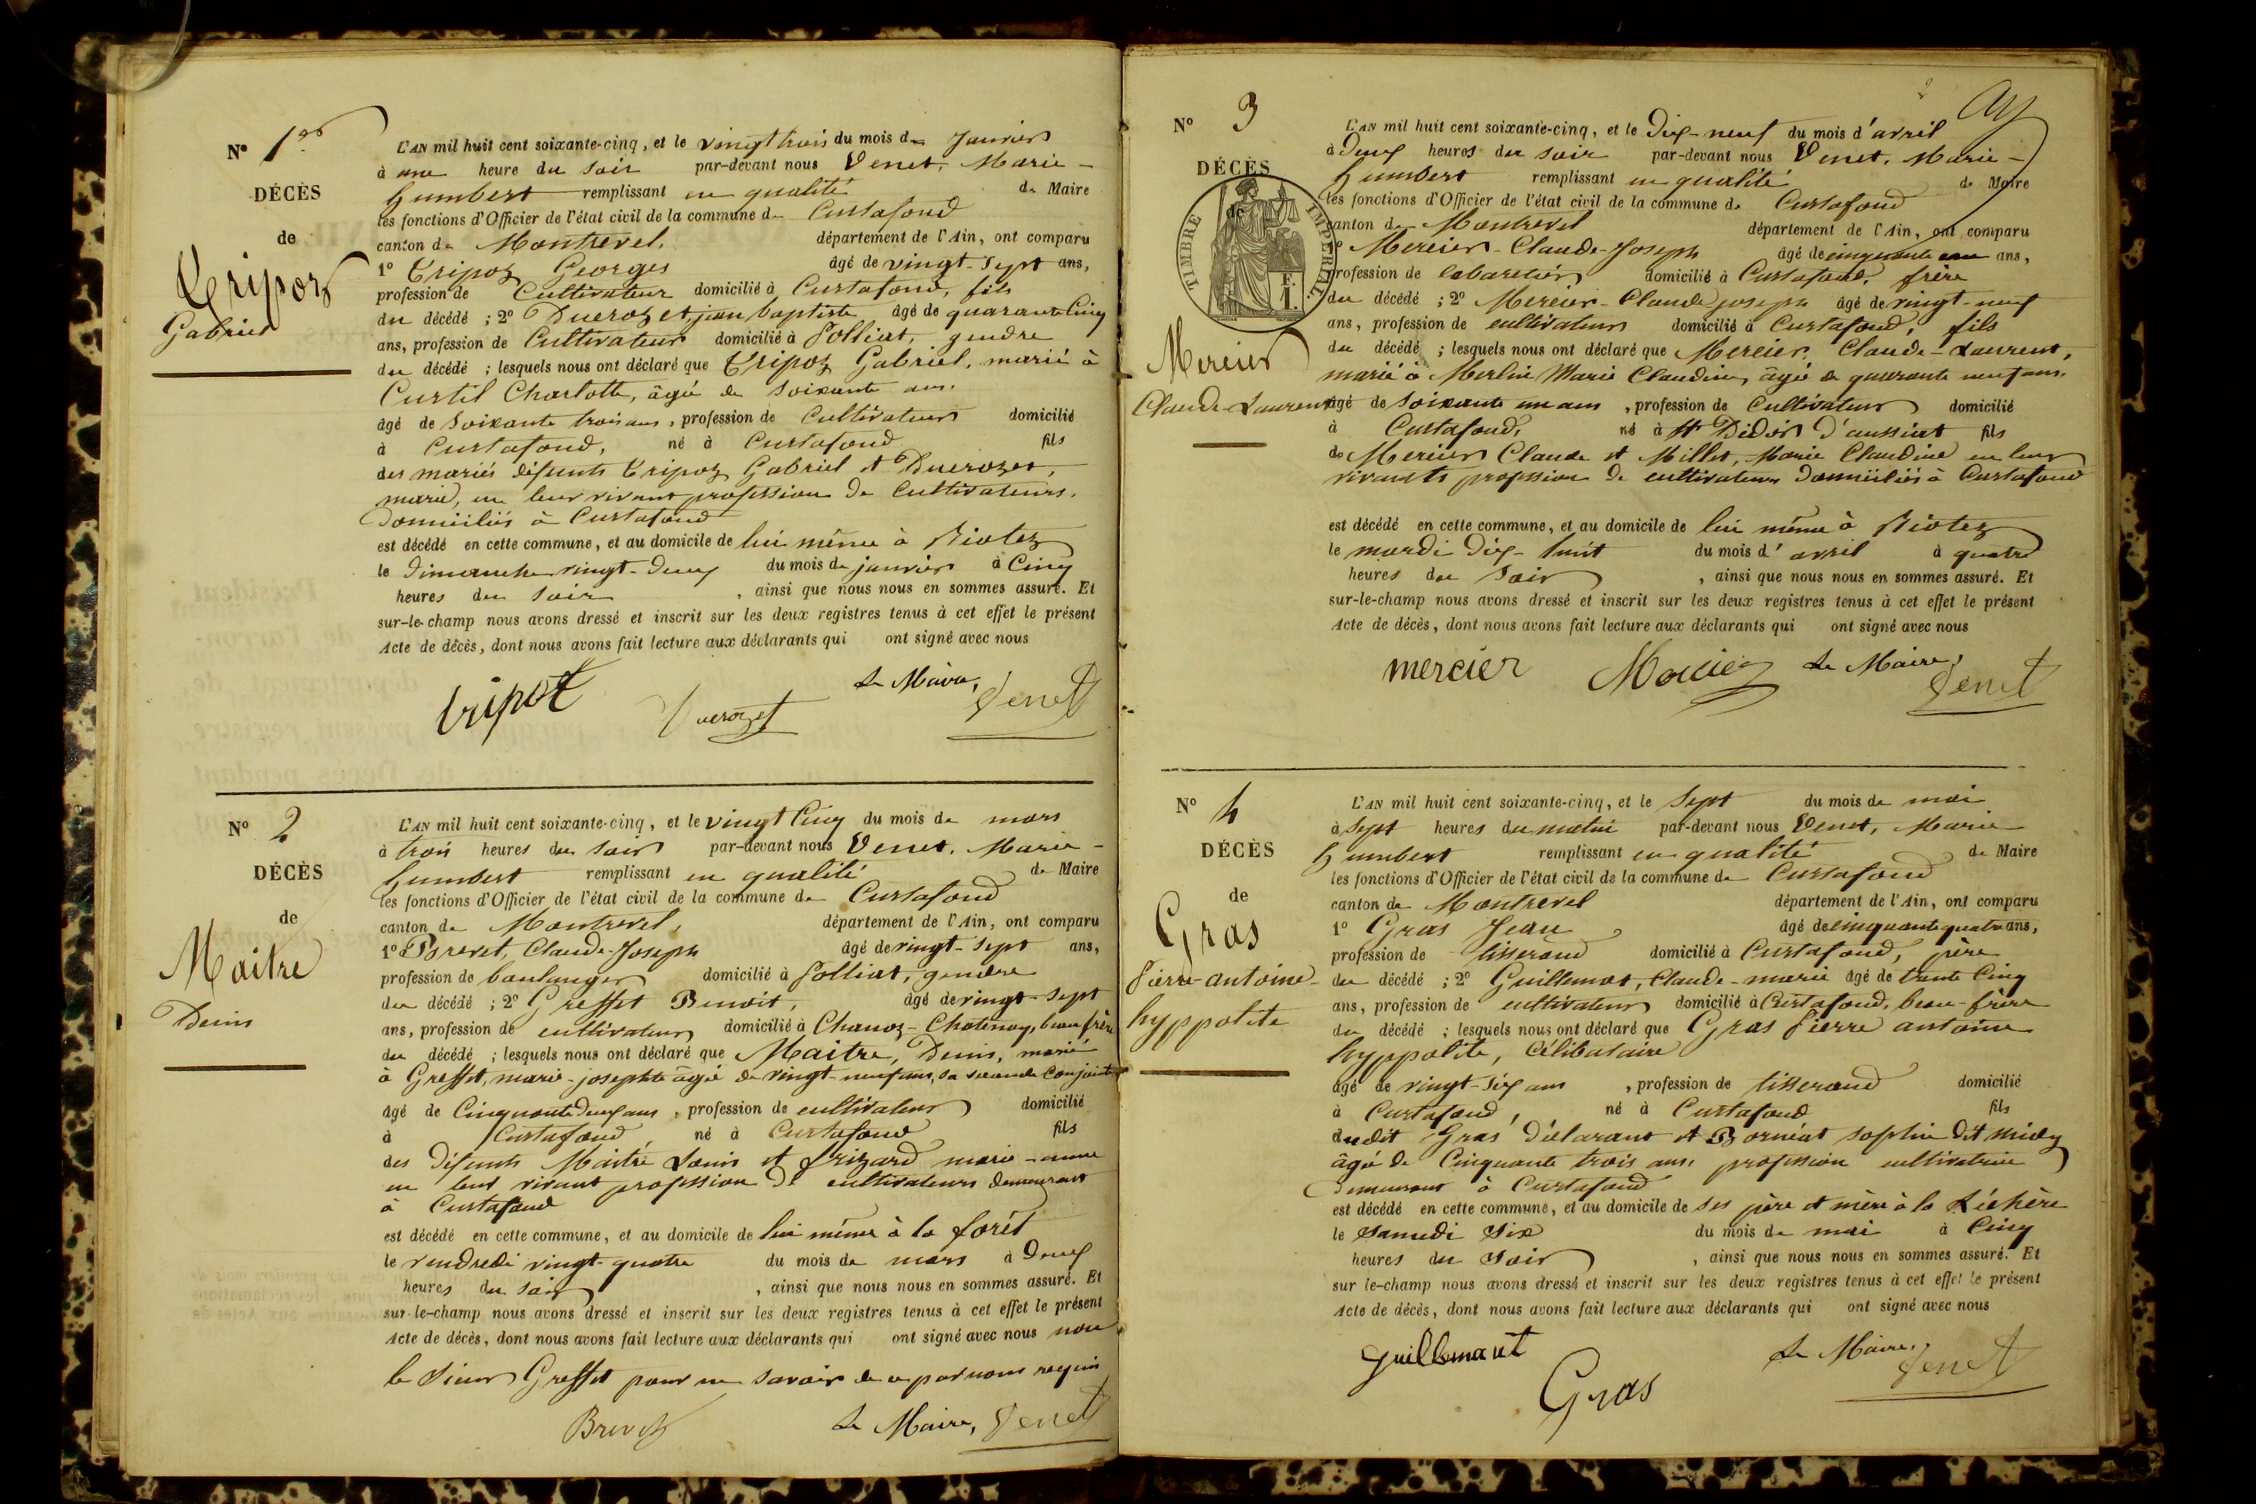 N° 1er
DÉCÈS
de
Tripoz
Gabriel
L'AN mil huit cent soixante-cinq, et le vingt trois du mois de Janvier
à une heure du soir par-devant nous Venet, Marie-
humbert remplissant en qualité de Maire
les fonctions d'Officier de l'état civil de la commune de Curtafond
canton de Montrevel, département de l'Ain, ont comparu
1° Tripoz Georges âgé de vingt-sept ans,
profession de Cultivateur domicilié à Curtafond, fils
du décédé ; 2° Duerozet jean baptiste âgé de quarante Cinq
ans, profession de Cultivateur domicilié à Polliat, gendre
du décédé ; lesquels nous ont déclaré que Tripoz Gabriel, marié à
Curtil Charlotte, âgée de soixante ans,
âgé de soixante trois ans, profession de Cultivateur domicilié
à Curtafond, né à Curtafond fils
des mariés défunts Tripoz Gabriel et Duerozet,
marie, en leur vivant profession de Cultivateurs,
domiciliés à Curtafond
est décédé en cette commune, et au domicile de lui même à Biotez
le dimanche vingt-deux du mois de janvier à Cinq
heures du soir , ainsi que nous nous en sommes assuré. Et
sur-le-champ nous avons dressé et inscrit sur les deux registres tenus à cet effet le présent
Acte de décès, dont nous avons fait lecture aux déclarants qui ont signé avec nous
Le Maire,
tripot Duerozet Venet
N° 2
DÉCÈS
de
Maitre
Denis
L'AN mil huit cent soixante-cinq, et le vingt Cinq du mois de mars
à trois heures du soir par-devant nous Venet, Marie-
humbert remplissant en qualité de Maire
les fonctions d'Officier de l'état civil de la commune de Curtafond
canton de Montrevel, département de l'Ain, ont comparu
1° Brevet, Claude-Joseph âgé de vingt-sept ans,
profession de boulanger domicilié à Polliat, gendre
du décédé ; 2° Greffet Benoit, âgé de vingt-sept
ans, profession de cultivateur domicilié à Chanoz-Chatenay, beau frère
du décédé ; lesquels nous ont déclaré que Maitre, Denis, marié
à Greffet, marie-josephte âgée de vingt-neuf ans, sa seconde Conjointe
âgé de Cinquante deux ans, profession de cultivateur domicilié
à Curtafond né à Curtafond fils
des défunts Maitre Denis et frizard marie-anne
en leur vivant profession de cultivateurs demeurant
à Curtafond
est décédé en cette commune, et au domicile de lui même à la forêt
le vendredi vingt-quatre du mois de mars à deux
heures du soir , ainsi que nous nous en sommes assuré. Et
sur-le-champ nous avons dressé et inscrit sur les deux registres tenus à cet effet le présent
Acte de décès, dont nous avons fait lecture aux déclarants qui ont signé avec nous non
le sieur Greffet pour ne savoir de ce par nous requis
Brevet Le Maire, Venet
N° 3
DÉCÈS
de
TIMBRE IMPÉRIAL
Mercier
Claude-Laurent
L'AN mil huit cent soixante-cinq, et le Dix-neuf du mois d'avril
à Deux heures du soir par-devant nous Venet, Marie-
humbert remplissant en qualité de Maire
les fonctions d'Officier de l'état civil de la commune de Curtafond
canton de Montrevel département de l'Ain, ont comparu
1° Mercier-Claude-Joseph âgé de cinquante ans,
profession de Cabaretier domicilié à Curtafond, frère
du décédé ; 2° Mercier-Claude joseph âgé de vingt-neuf
ans, profession de cultivateur domicilié à Curtafond, fils
du décédé ; lesquels nous ont déclaré que Mercier Claude-Laurent,
marié à Merlin Marie Claudine, âgée de quarante neuf ans,
âgé de soixante un ans, profession de Cultivateur domicilié
à Curtafond, né à St Didier d'aussiat fils
de Mercier Claude et Millet, Marie Claudine en leur
vivants profession de cultivateurs domiciliés à Curtafond
est décédé en cette commune, et au domicile de lui même à Biotez
le mardi dix-huit du mois d'avril à quatre
heures du soir , ainsi que nous nous en sommes assuré. Et
sur-le-champ nous avons dressé et inscrit sur les deux registres tenus à cet effet le présent
Acte de décès, dont nous avons fait lecture aux déclarants qui ont signé avec nous
mercier Mercier Le Maire,
Venet
N° 4
DÉCÈS
de
Gras
Pierre-antoine-
hyppolite
L'AN mil huit cent soixante-cinq, et le Sept du mois de mai
à sept heures du matin par-devant nous Venet, Marie
humbert remplissant en qualité de Maire
les fonctions d'Officier de l'état civil de la commune de Curtafond
canton de Montrevel département de l'Ain, ont comparu
1° Gras Jean, âgé de Cinquante quatre ans,
profession de tisserand domicilié à Curtafond, père
du décédé ; 2° Guillemot, Claude-marie âgé de trente Cinq
ans, profession de cultivateur domicilié à Curtafond, beau-frère
du décédé ; lesquels nous ont déclaré que Gras Pierre antoine
hyppolite, Célibataire
âgé de vingt-six ans, profession de tisserand domicilié
à Curtafond, né à Curtafond fils
dudit Gras déclarant et Bornéat sophie dit
âgée de Cinquante trois ans, profession cultivatrice
demeurant à Curtafond
est décédé en cette commune, et au domicile de ses père et mère à la Léchère
le samedi six du mois de mai à Cinq
heures du soir , ainsi que nous nous en sommes assuré. Et
sur-le-champ nous avons dressé et inscrit sur les deux registres tenus à cet effet le présent
Acte de décès, dont nous avons fait lecture aux déclarants qui ont signé avec nous
Guillemaut Le Maire,
Gras Venet